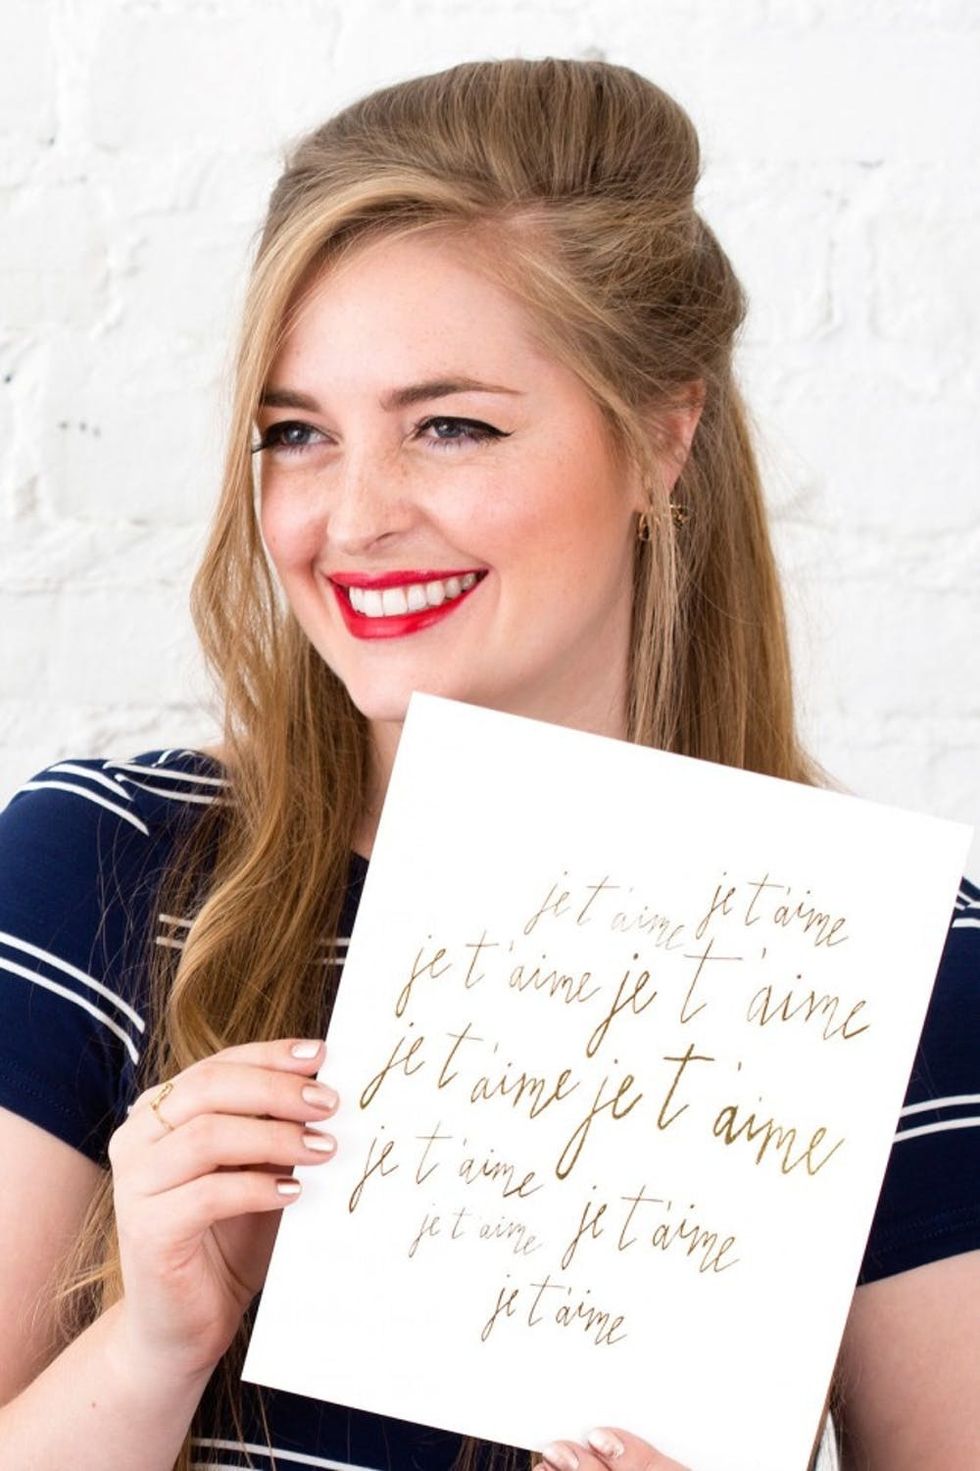 je t'aime je t'aime
je t'aime je t'aime
je t'aime je t'aime
je t'aime
je t'aime je t'aime
je t'aime